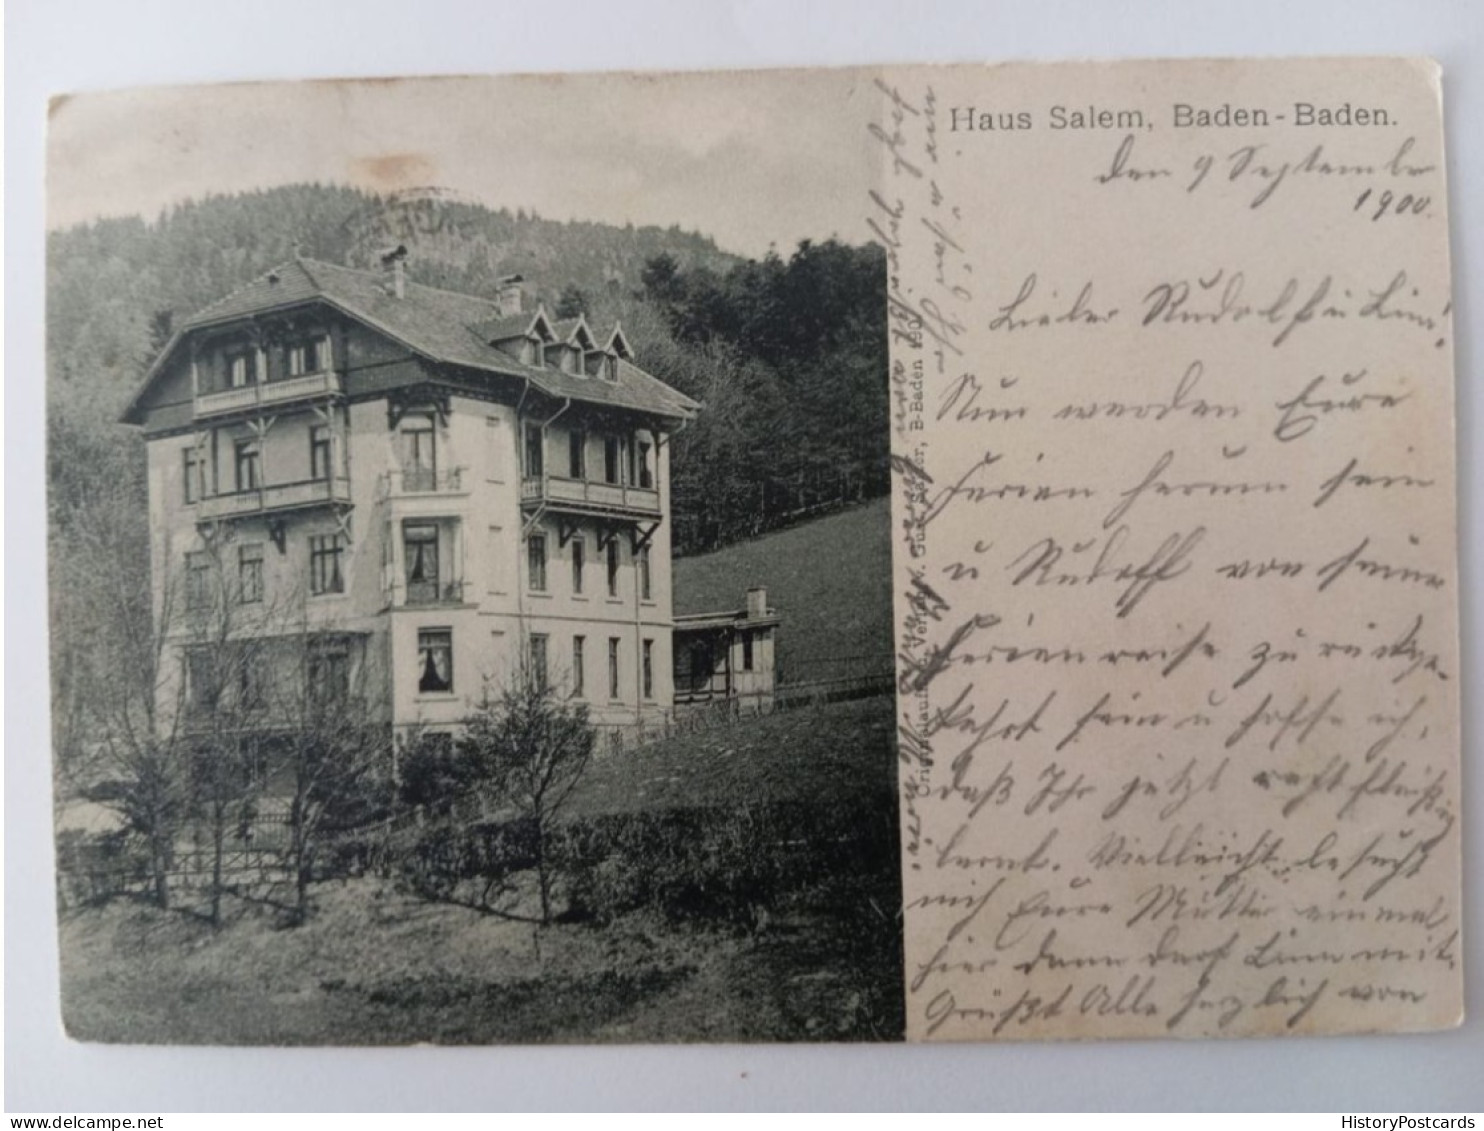 Haus Salem, Baden-Baden.
den 9 September
1900.
Lieber Rudolf u
Nun werden Eure
Ferien herum sein
u Rudolf von seiner
Ferienreise zurückge-
kehrt sein u hoffe ich,
daß Ihr jetzt recht fleißig
lernt. Vielleicht besucht
mich Eure Mutter einmal
hier dann darf mit.
Grüßt Alle herzlich von
B-Baden 190
HistoryPostcards